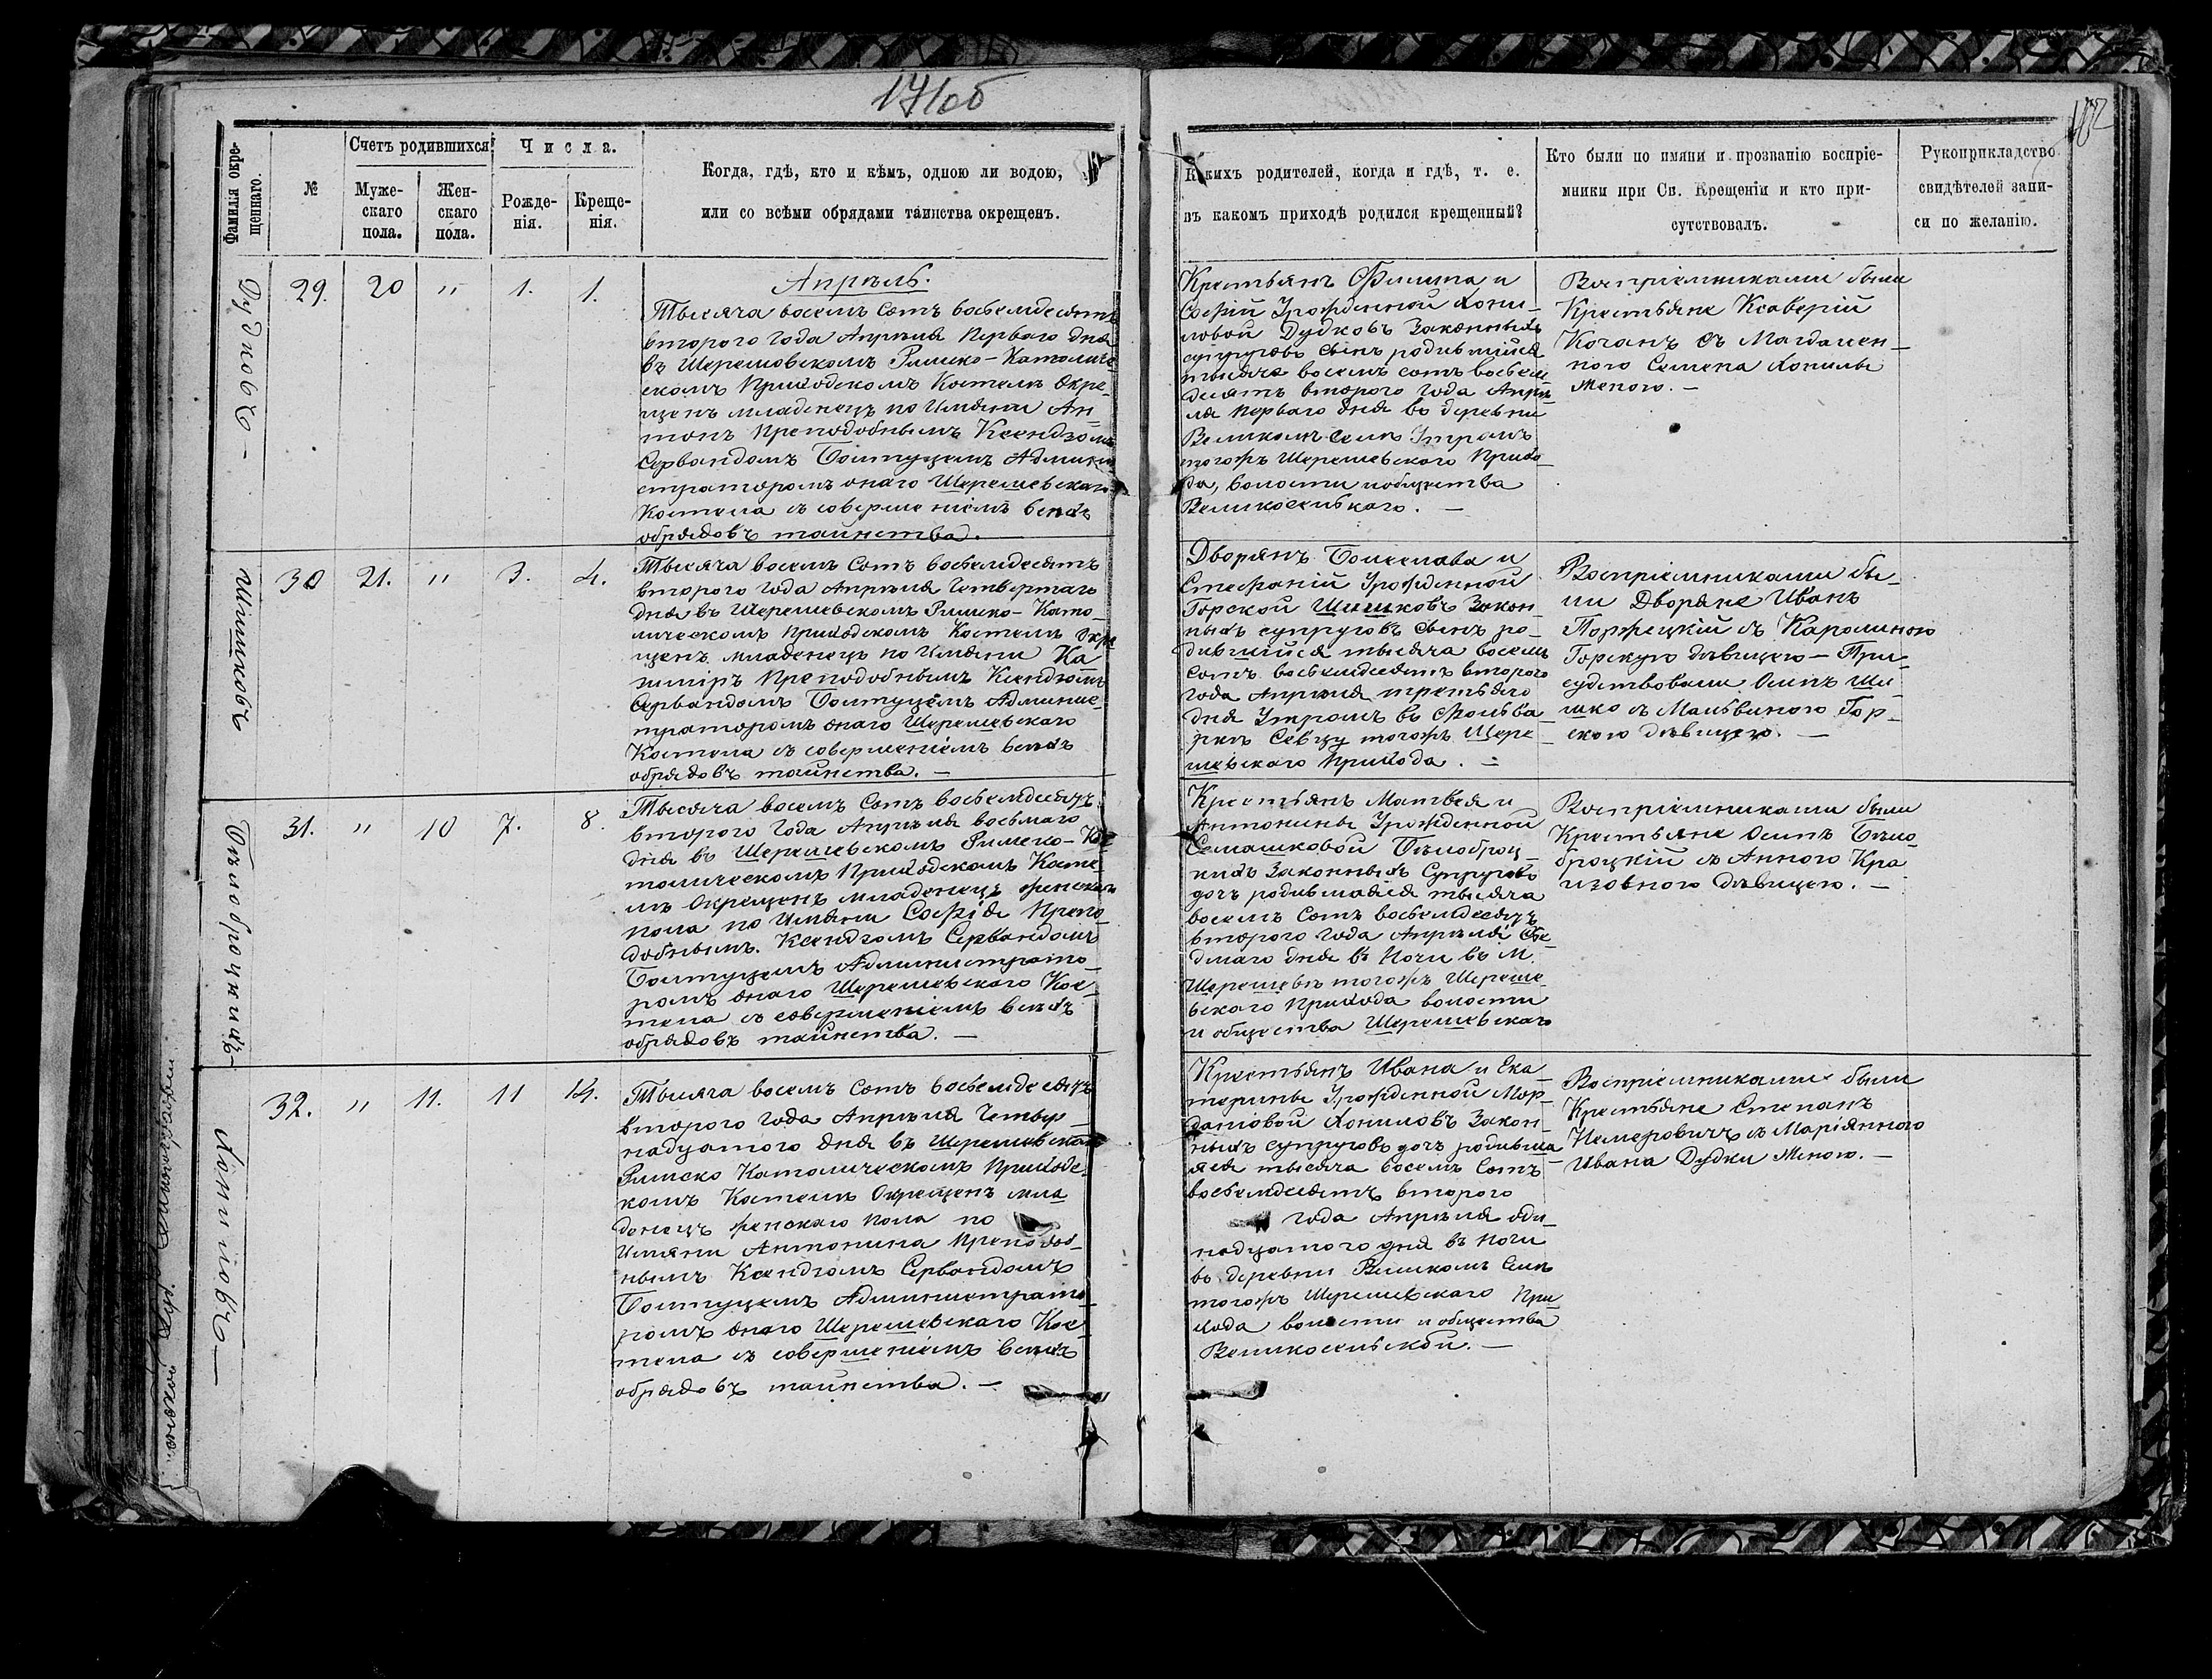 171об
182
Фамилія окре-
щеннаго.
№
Счетъ родившихся
Муже-
скаго
пола.
Жен-
скаго
пола.
Числа.
Рожде-
нія.
Креще-
нія.
Когда, гдѣ, кто и кѣмъ, одною ли водою,
или со всѣми обрядами таинства окрещенъ.
Какихъ родителей, когда и гдѣ, т. е.
въ какомъ приходѣ родился крещенный?
Кто были по имяни и прозванію воспріе-
мники при Св. Крещеніи и кто при-
сутствовалъ.
Рукоприкладство
свидѣтелей запи-
си по желанію.
Дудковъ
29. 20 " 1. 1.
Апрѣль.
Тысяча восемъ сотъ восемдесятъ
второго года Апрѣля Перваго дня
въ Шерешовскомъ Римско-Католиче
скомъ Приходскомъ Костелѣ Окре-
щенъ младенецъ по Имяни Ан-
тонъ Преподобнымъ Ксендзомъ
Сервандомъ Болтуцемъ Админи
страторомъ онаго Шерешевскаго
Костела съ совершеніемъ всѣхъ
обрядовъ таинства.
Крестьянъ Филипа и
Софіи Урожденной Копы-
ловой Дудковъ Законныхъ
супруговъ сынъ родившійся
тысяча восемъ сотъ восем
десятъ второго года Апрѣ
ля перваго дня въ деревни
Великомъ Селѣ Утромъ
тогожъ Шерешевского Прихо
да, волости и общества
Великосельскаго. —
Воспріемниками были
Крестьяне Ксаверій
Коганъ съ Магдален-
ною Семена Копылы
женою. —
Шишковъ
30 21. " 3. 4.
Тысяча восемъ сотъ восемдесятъ
второго года Апрѣля Четвертаго
дня въ Шерешевскомъ Римско-Като-
лическомъ приходскомъ Костелѣ Окре
щенъ младенецъ по Имяни Ка
зиміръ Преподобнымъ Ксендзомъ
Сервандомъ Болтуцемъ Админис-
траторомъ онаго Шерешевскаго
Костела съ совершеніемъ всѣхъ
обрядовъ таинства. —
Дворянъ Болеслава и
Стефаніи Урожденной
Горской Шишковъ Закон-
ныхъ супруговъ сынъ ро-
дившійся тысяча восемъ
сотъ восемдесятъ второго
года Апрѣля третьяго
дня Утромъ въ фольва-
ркѣ тогожъ Шере
шевскаго Прихода. —
Воспріемниками бы-
ли Дворяне Иванъ
Поржецкій съ Каролиною
Горскую дѣвицею — При-
судствовали Осипъ Ши-
шко съ Мальвиною Гор-
скою дѣвицею. —
Бѣлоброцкихъ
31. " 10 7. 8.
Тысяча восемъ сотъ восемдесятъ
второго года Апрѣля восьмаго
дня въ Шерешевскомъ Римско-Ка-
толическомъ Приходскомъ Косте-
лѣ Окрещенъ младенецъ женскаго
пола по Имяни Софія Препо-
добнымъ Ксендзомъ Сервандомъ
Болтуцемъ Администрато-
ромъ онаго Шерешевскаго Кос-
тела съ совершеніемъ всѣхъ
обрядовъ таинства. —
Крестьянъ Матвея и
Антонины Урожденной
Семашковой Бѣлоброц-
кихъ Законныхъ Супруговъ
дочь родившаяся тысяча
восемъ сотъ восемдесятъ
второго года Апрѣля Се-
дмаго дня въ Ночи въ М.
Шерешевѣ тогожъ Шереше-
вского прихода волости
и общества Шерешевскаго
Воспріемниками были
Крестьяне Осипъ Бѣло-
броцкій съ Анною Кра
дѣвицею. —
Копыловъ —
32. " 11. 11 14.
Тысяча восемъ сотъ восемдесятъ
второго года Апрѣля Четыр-
надцатого дня въ Шерешевском
Римско Католическомъ Приходс-
комъ Костелѣ Окрещенъ мла
денецъ женскаго пола по
Имяни Антонина Преподоб-
нымъ Ксендзомъ Сервандомъ
Болтуцемъ Администрато-
ромъ онаго Шерешевскаго Кос-
тела съ совершеніемъ всѣхъ
обрядовъ таинства. —
Крестьянъ Ивана и Ека-
терины Урожденной Мор-
Копыловъ Закон-
ныхъ супруговъ дочь родивша-
яся тысяча восемъ сотъ
восемдесятъ второго
года Апрѣля оди-
надцатого дня въ ночи
въ деревни Великомъ Селѣ
тогожъ Шерешевскаго При-
хода волости и общества
Великосельской. —
Воспріемниками были
Крестьяне Степанъ
Немеровичъ съ Маріянною
Ивана Дудки Женою. —